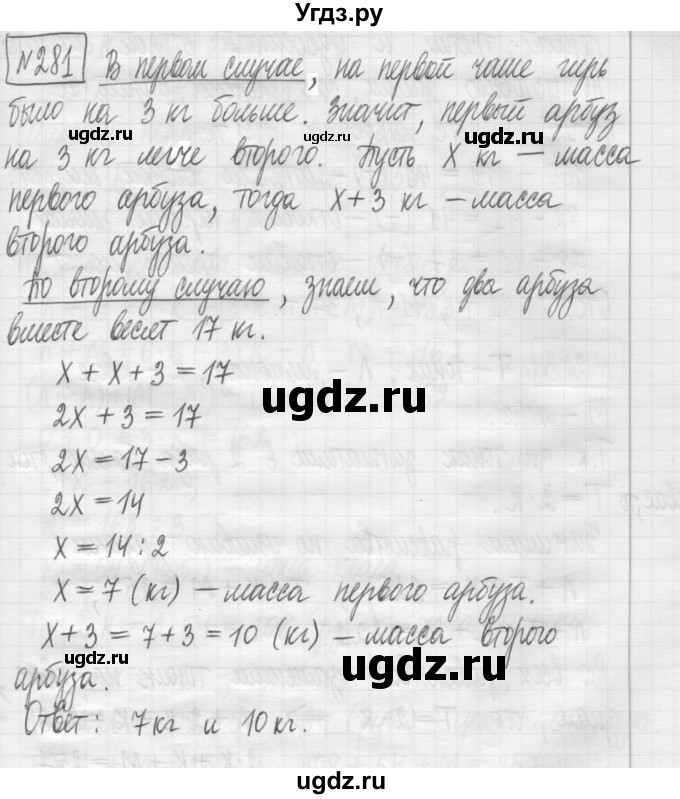 Угдз.ру
№281 В первом случае, на первой чаше гирь
было на 3 кг больше. Значит, первый арбуз
ugdz.ru ugdz.ru ugdz.ru
на 3 кг легче второго. Пусть x кг – масса
первого арбуза, тогда x+3 кг – масса
второго арбуза.
По второму случаю, знаем, что два арбуза
вместе весят 17 кг.
x + x + 3 = 17
ugdz.ru
2x + 3 = 17
2x = 17 – 3
2x = 14
x = 14 : 2
x = 7 (кг) – масса первого арбуза.
x+3 = 7+3 = 10 (кг) – масса второго
ugdz.ru ugdz.ru
арбуза.
Ответ: 7кг и 10кг.
ugdz.ru
ugdz.ru